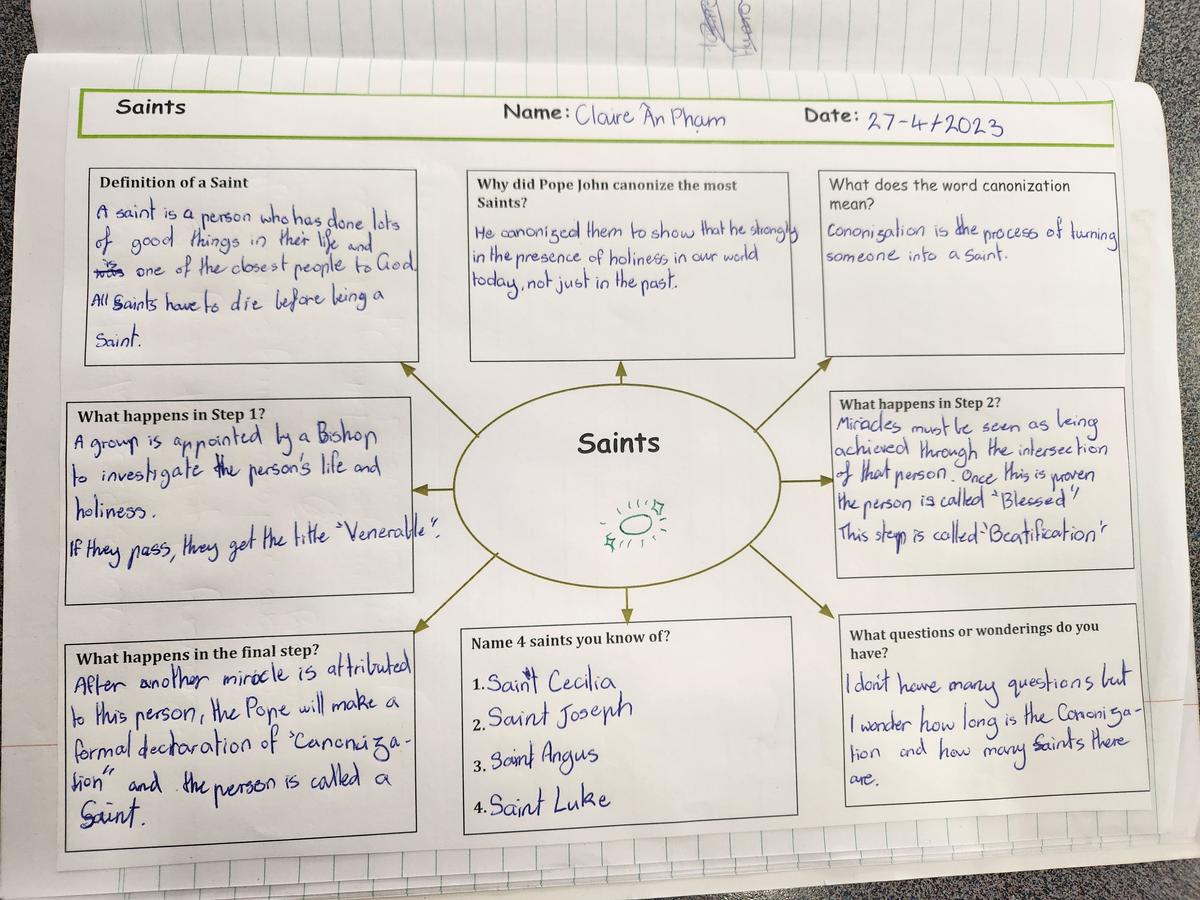 Saints
Name: Claire Ân Phạm
Date: 27-4/2023
Definition of a Saint
A saint is a person who has done lots
of good things in their life and
is one of the closest people to God.
All Saints have to die before being a
Saint.
Why did Pope John canonize the most
Saints?
He canonized them to show that he strongly
in the presence of holiness in our world
today, not just in the past.
What does the word canonization
mean?
Cononization is the process of turning
someone into a Saint.
What happens in Step 1?
A group is appointed by a Bishop
to investigate the person's life and
holiness.
If they pass, they get the title "Venerable".
Saints
What happens in Step 2?
Miracles must be seen as being
achieved through the intersection
of that person. Once this is proven
the person is called "Blessed"
This step is called "Beatification"
What happens in the final step?
After another miracle is attributed
to this person, the Pope will make a
formal declaration of "Canoniza-
tion" and the person is called a
Saint.
Name 4 saints you know of?
1. Saint Cecilia
2. Saint Joseph
3. Saint Angus
4. Saint Luke
What questions or wonderings do you
have?
I don't have many questions but
I wonder how long is the Cononiza-
tion and how many Saints there
are.